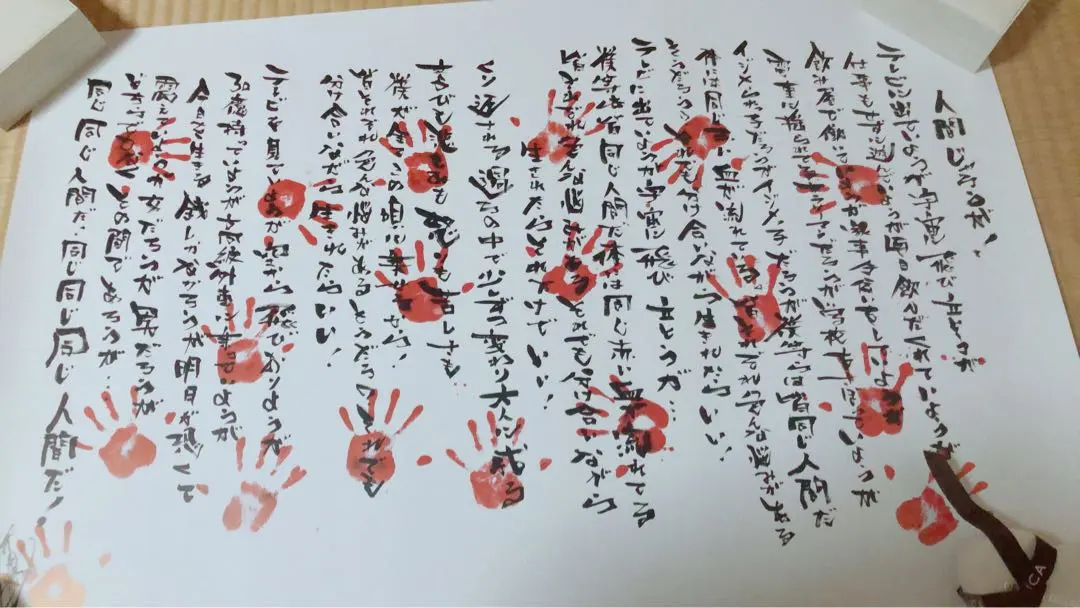 人間じゃろが!
テレビに出ていようが宇宙へ飛び立とうが
仕事もせず遊んでようが毎日飲んだくれていようが
飲み屋で働いていようが 合いをしてようが
学校 ているが
イジメられっ子だろうがイジメっ子だろうが僕等は皆同じ人間だ
体は同じ 血が流れている 皆それぞれ色んな悩みがある
そうだろう 分け合いながら生きれたらいい!
テレビに出ていようが宇宙へ飛び立とうが…
僕等は皆同じ人間だ体は同じ赤い血が流れてる
皆それぞれ色んな悩みがあるそれでも分け合いながら
生きれたらそれだけでいい!
くり返される 中で少しずつ変わり大人に成る
喜びも悲しみも怒りも苦しさも
僕が全てこの唄に乗せ
皆それぞれ色んな悩みがあるそうだろう それでも
分け合いながら生きれたらいい!
テレビを見てようが
30億持っていようが高級外車に乗っていようが
今日を生きる 銭しかなかろうが明日が恐くて
震えていようが女だろうが男だろうが
どちら の間であろうが…
同じ同じ人間だ。同じ同じ同じ人間だ!
CA